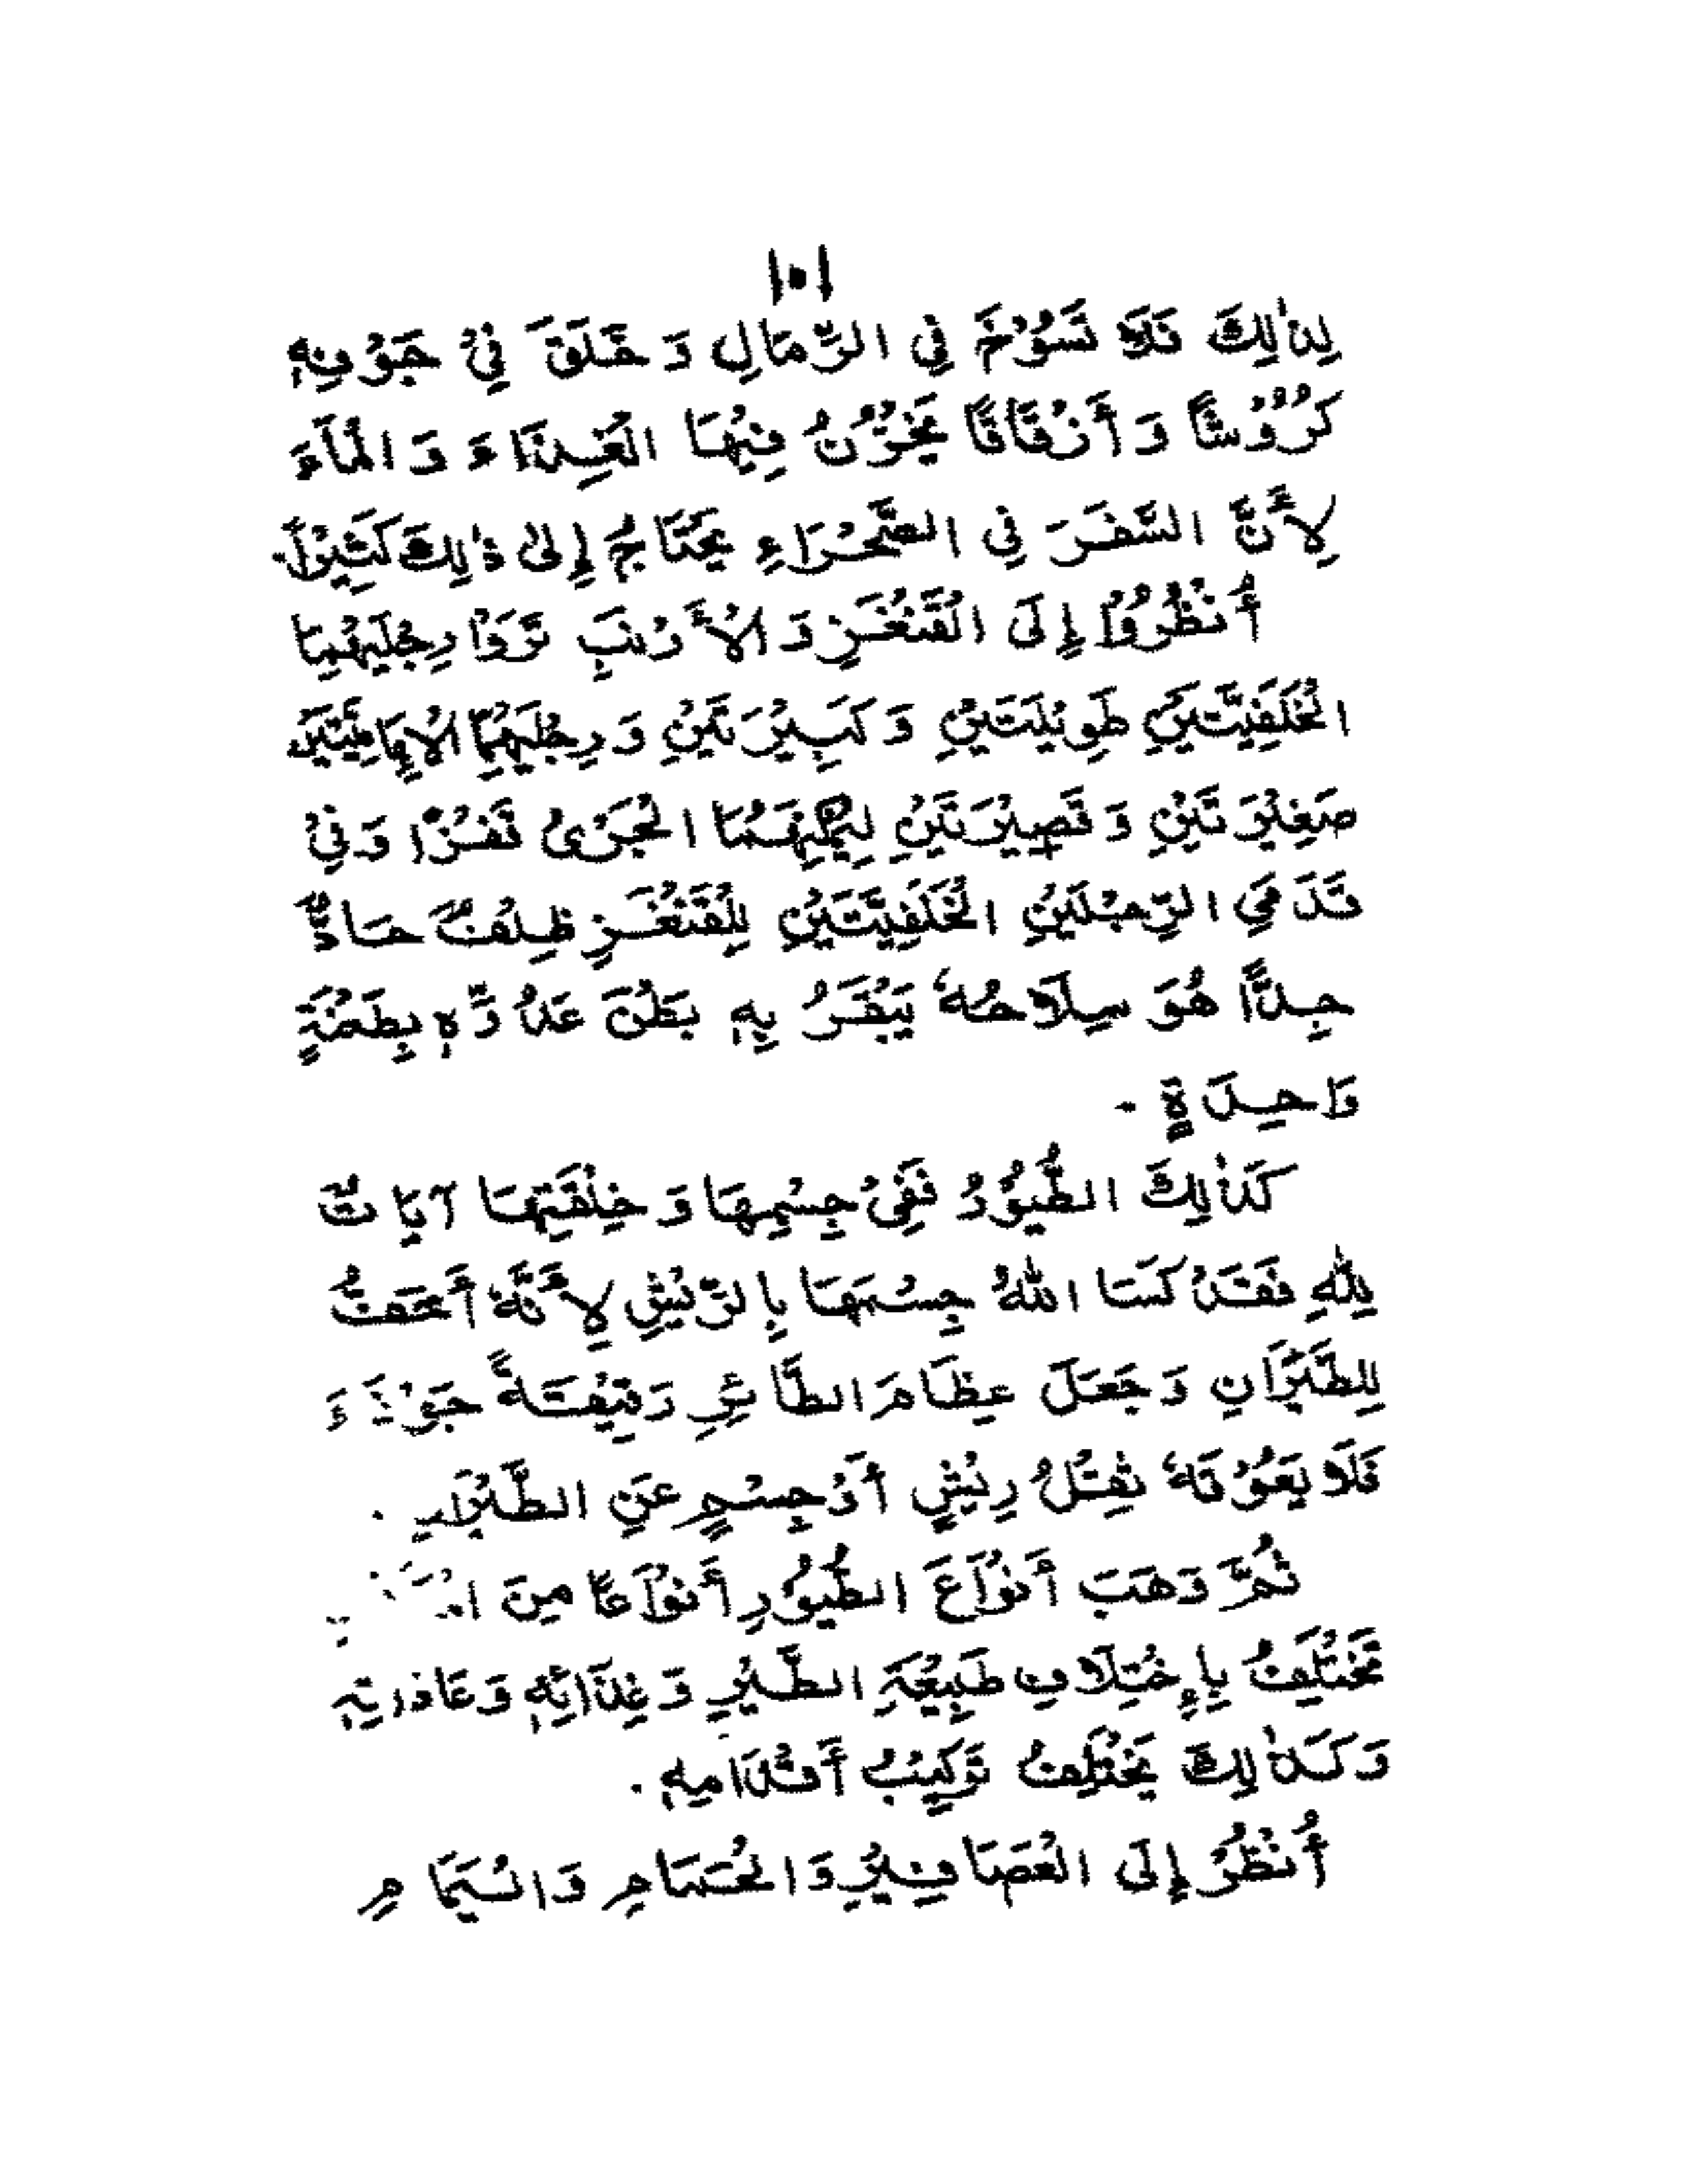 ١٠١
لِذٰلِكَ فَلَا تَسُوْخُ فِي الرِّمَالِ وَ خَلَقَ فِيْ جَوْفِهِ
كُرُوْشًا وَ أَزْقَاقًا يَخْزُنُ فِيْهَا الْغِذَاءَ وَ الْمَآءَ
لِأَنَّ السَّفَرَ فِي الصَّحْرَاءِ يَحْتَاجُ إِلىٰ ذٰلِكَ كَثِيْرًا۔
أُنْظُرُوْا إِلَى الْقَنْغَرِ وَ الْأَرْنَبِ تَرَوْا رِجْلَيْهِمَا
الْخَلْفِيَّتَيْنِ طَوِيْلَتَيْنِ وَ كَبِيْرَتَيْنِ وَ رِجْلَيْهِمَا الْأَمَامِيَّتَيْنِ
صَغِيْرَتَيْنِ وَ قَصِيْرَتَيْنِ لِيُمْكِنَهُمَا الْجَرْىُ قَفْزًا وَ فِيْ
قَدَمَيِ الرِّجْلَيْنِ الْخَلْفِيَّتَيْنِ لِلْقَنْغَرِ ظِلْفٌ حَادٌّ
جِدًّا هُوَ سِلَاحُهُ يَبْقَرُ بِهِ بَطْنَ عَدُوِّهِ بِطَعْنَةٍ
وَاحِدَةٍ ۔
كَذٰلِكَ الطُّيُوْرُ فَفِيْ جِسْمِهَا وَ خِلْقَتِهَا آيَاتٌ
لِلّٰهِ فَقَدْ كَسَا اللّٰهُ جِسْمَهَا بِالرِّيْشِ لِأَنَّهُ أَخَفُّ
لِلطَّيَرَانِ وَ جَعَلَ عِظَامَ الطَّائِرِ رَقِيْقَةً جَوْفَاءَ
فَلَا يَعُوْقُهُ ثِقَلُ رِيْشٍ أَوْ جِسْمٍ عَنِ الطَّيَرَانِ .
ثُمَّ وَهَبَ أَنْوَاعَ الطُّيُوْرِ أَنْوَاعًا مِنَ
تَخْتَلِفُ بِإِخْتِلَافِ طَبِيْعَةِ الطَّيْرِ وَ غِذَائِهِ وَ عَادَاتِهِ
وَ كَذٰلِكَ يَخْتَلِفُ تَرْكِيْبُ أَقْدَامِهِ .
أُنْظُرْ إِلَى الْعَصَافِيْرِ وَ الْحَمَامِ وَ الْيَمَامِ